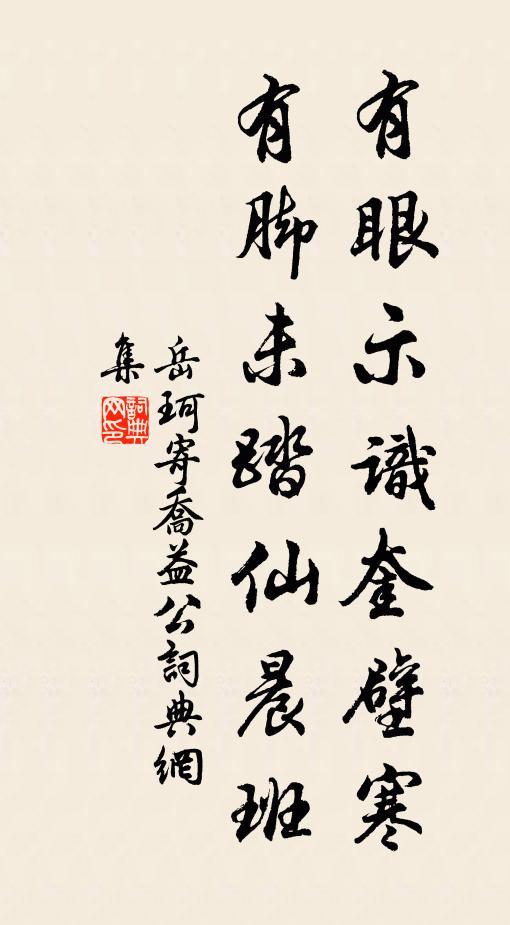 有眼示識奎壁寒
有脚未踏仙晨班
岳珂寄喬益公詞典網
集
詞典
网印